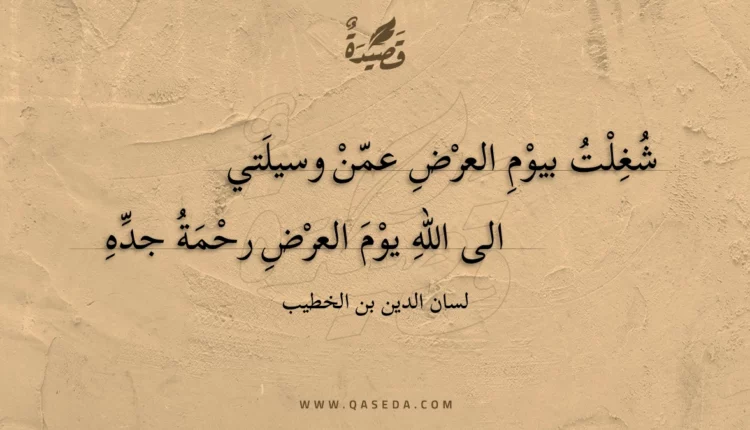 قَصِيْدَةٌ
شُغِلْتُ بيوْمِ العرْضِ عمّنْ وسيلَتي
الى اللهِ يوْمَ العرْضِ رحْمَةُ جدِّهِ
لسان الدين بن الخطيب
WWW.QASEDA.COM